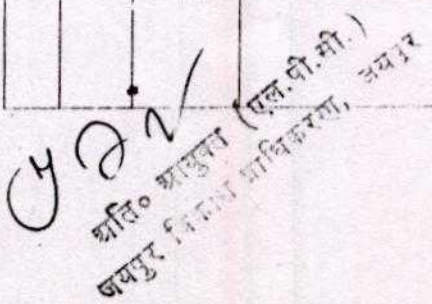 अति० आयुक्त (एल.पी.सी.)
जयपुर विकास प्राधिकरण, जयपुर